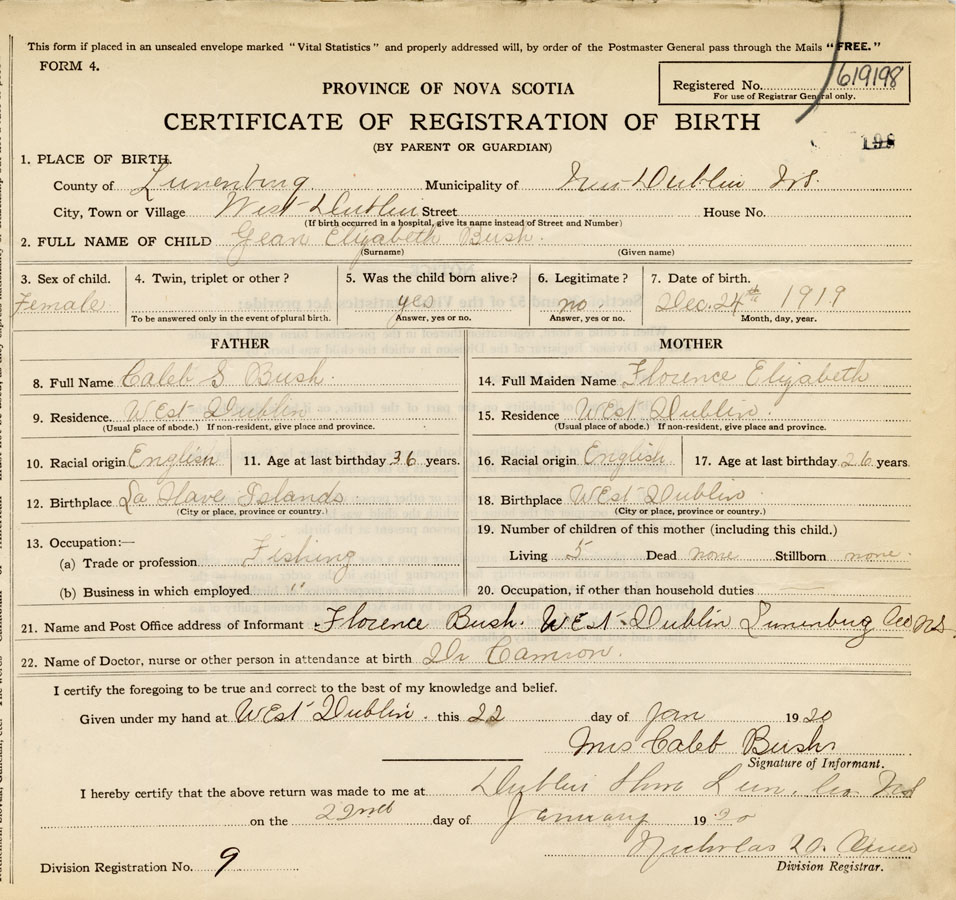 This form if placed in an unsealed envelope marked "Vital Statistics" and properly addressed will, by order of the Postmaster General pass through the Mails "FREE."
FORM 4.
Registered No. 619198
For use of Registrar General only.
PROVINCE OF NOVA SCOTIA
CERTIFICATE OF REGISTRATION OF BIRTH
198
(BY PARENT OR GUARDIAN)
1. PLACE OF BIRTH.
County of Lunenburg Municipality of Dublin N.S.
City, Town or Village West Dublin Street House No.
(If birth occurred in a hospital, give its name instead of Street and Number)
2. FULL NAME OF CHILD Gean Elizabeth Bush.
(Surname) (Given name)
3. Sex of child. 4. Twin, triplet or other? 5. Was the child born alive? 6. Legitimate? 7. Date of birth.
Female yes no Dec. 24th 1919
To be answered only in the event of plural birth. Answer, yes or no. Answer, yes or no. Month, day, year.
FATHER MOTHER
8. Full Name Caleb S Bush. 14. Full Maiden Name Florence Elizabeth
9. Residence. West Dublin 15. Residence West Dublin.
(Usual place of abode.) If non-resident, give place and province. (Usual place of abode.) If non-resident, give place and province.
10. Racial origin English 11. Age at last birthday 36 years. 16. Racial origin English 17. Age at last birthday 26 years.
12. Birthplace La Have Islands 18. Birthplace West Dublin
(City or place, province or country.) (City or place, province or country.)
13. Occupation:— 19. Number of children of this mother (including this child.)
(a) Trade or profession Fishing Living 5 Dead none Stillborn none.
(b) Business in which employed " 20. Occupation, if other than household duties —
21. Name and Post Office address of Informant Florence Bush. West Dublin Lunenburg Co NS.
22. Name of Doctor, nurse or other person in attendance at birth Dr Camron.
I certify the foregoing to be true and correct to the best of my knowledge and belief.
Given under my hand at West Dublin. this 22 day of Jan 1920
Mrs Caleb Bush
Signature of Informant.
I hereby certify that the above return was made to me at Dublin Shore Lun. Co. NS
on the 22nd day of January 1920
Nicholas
Division Registration No. 9 Division Registrar.